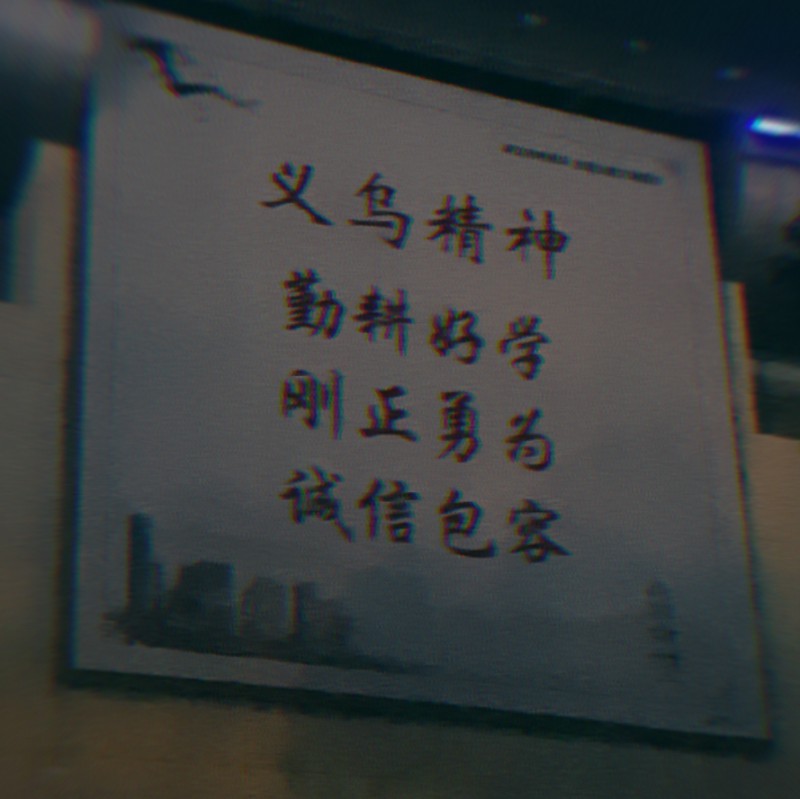 义乌精神
勤耕好学
刚正勇为
诚信包容